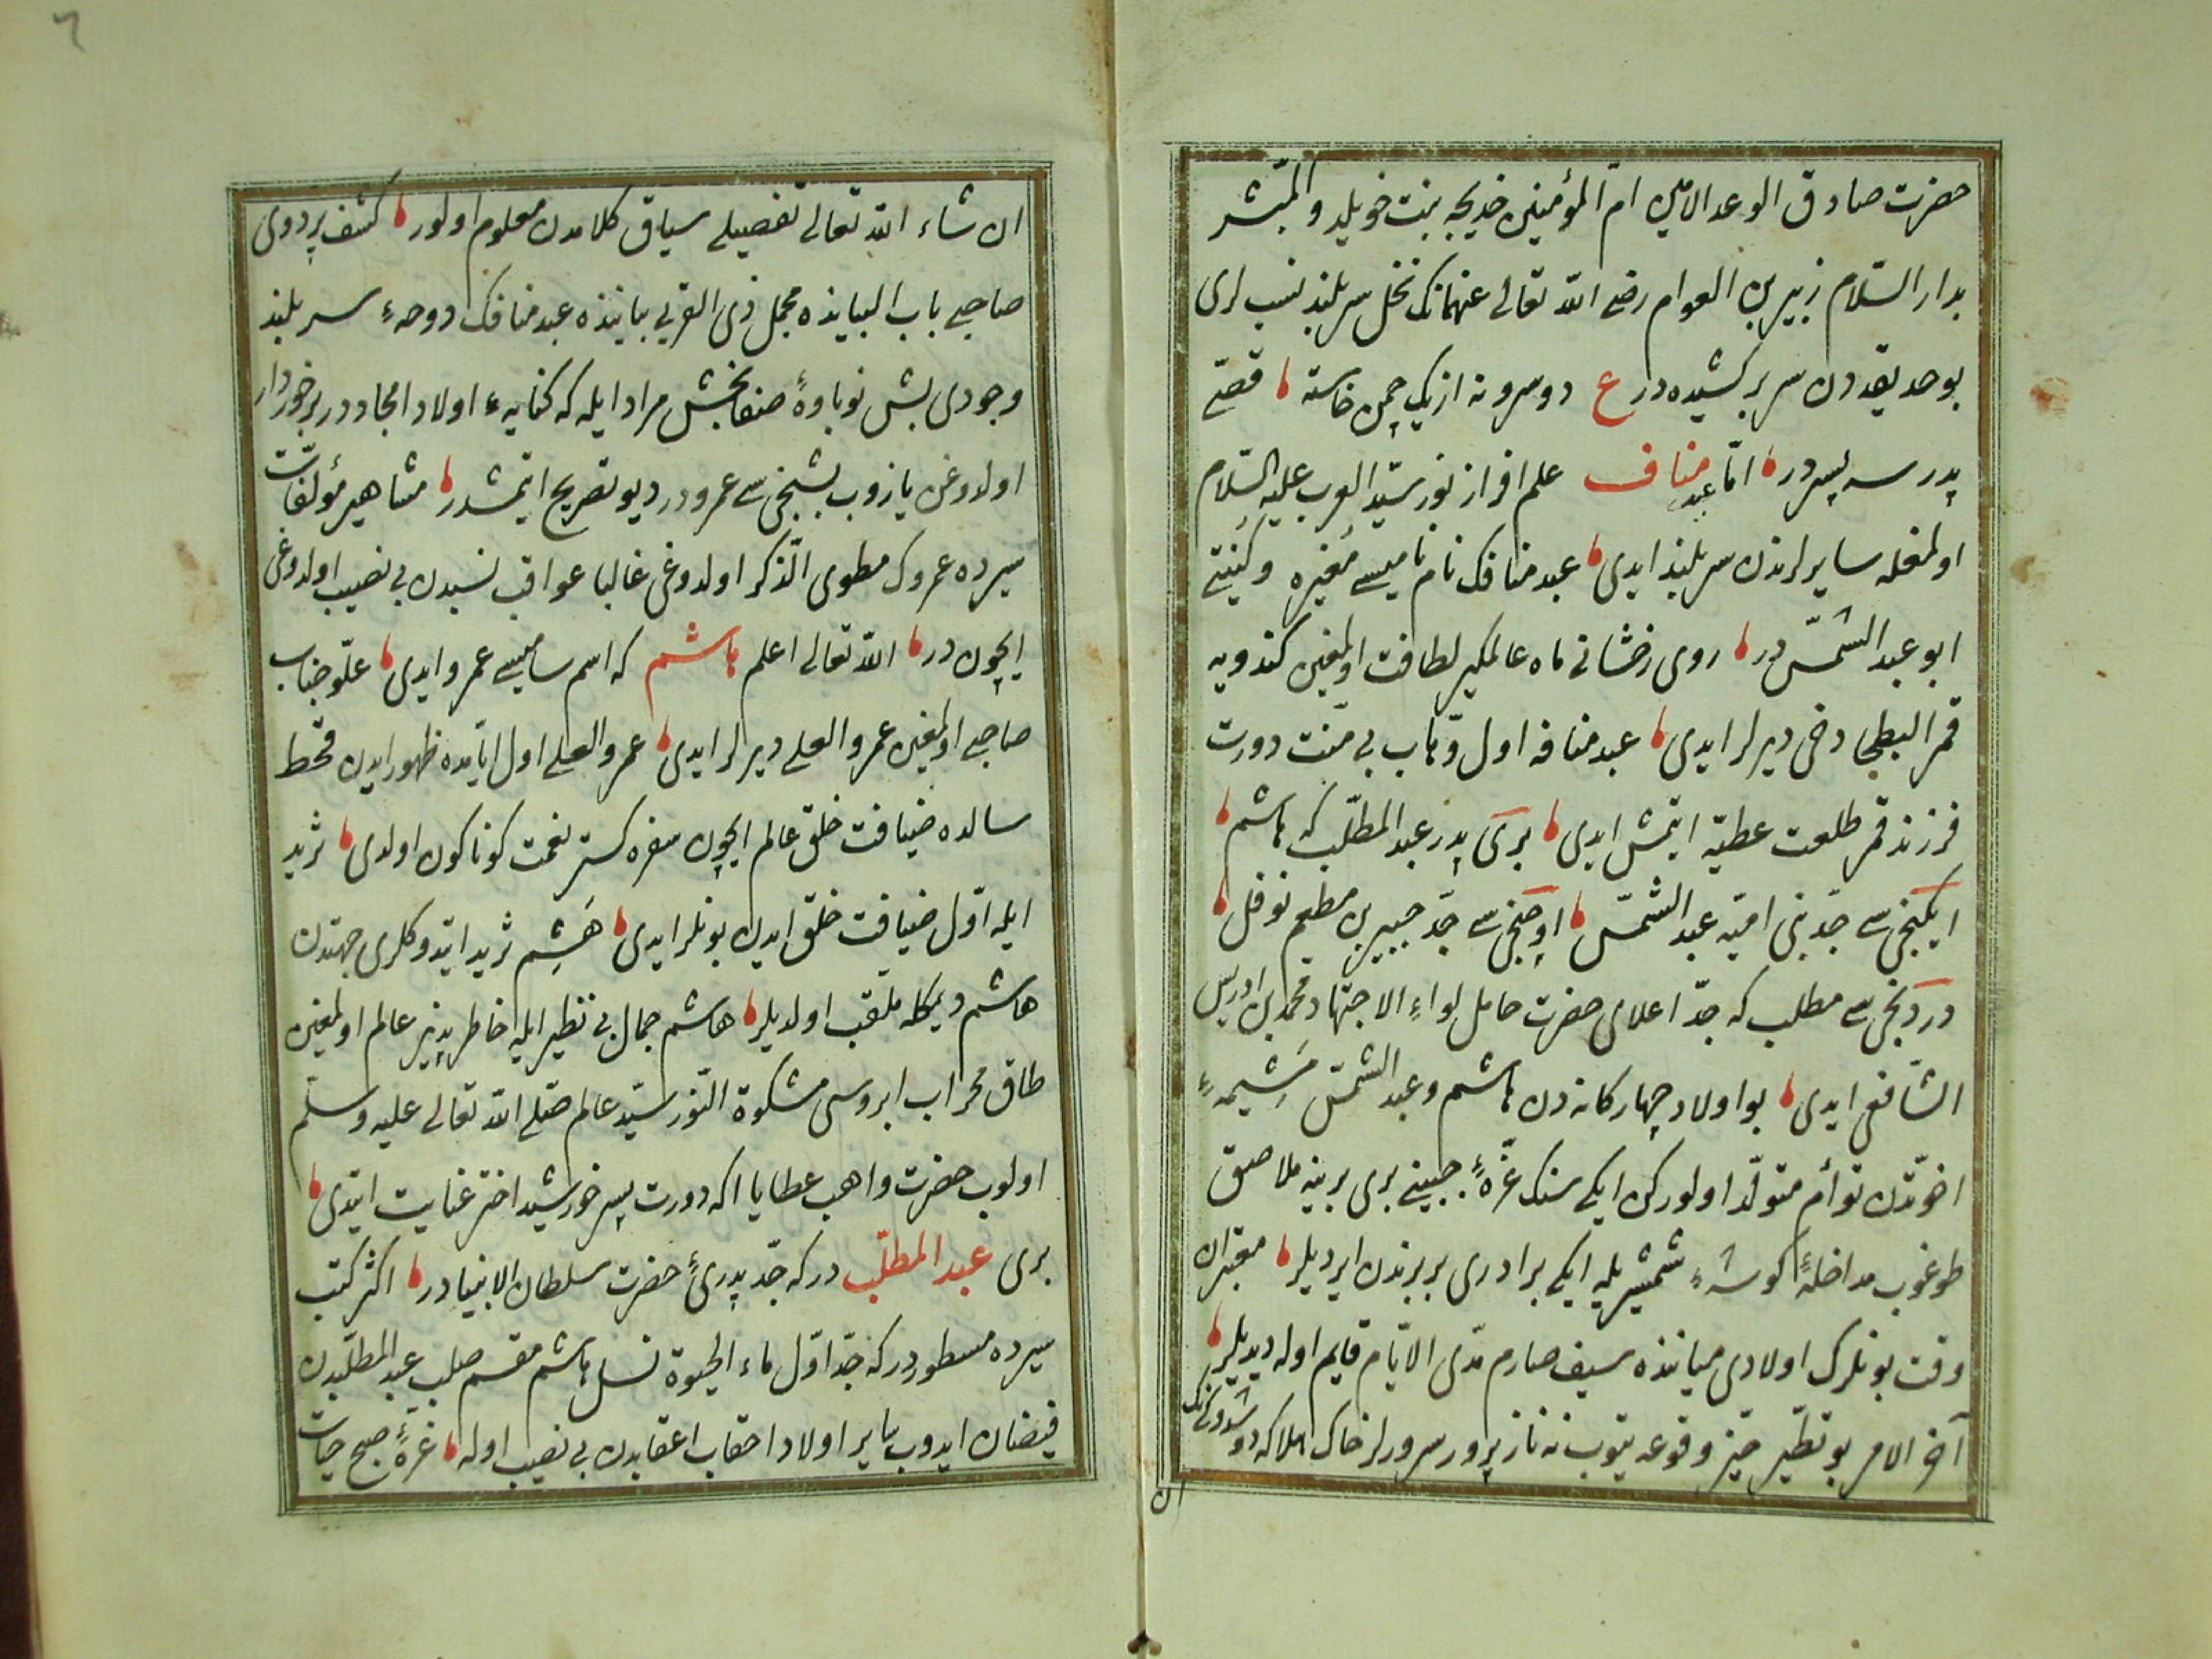 حضرت صادق الوعد الامین امّ المؤمنین خدیجه بنت خویلد والمبشر
بدار السّلام زبیر بن العوام رضی الله تعالی عنهمانک نخل سربلند نسب لری
بو حدیقه‌دن سر بر کشیده‌در ع دو سرونه از یک چمن خاسته قصّی
پدر سه پسردر امّا عبد مناف علم افراز نور سیّد العرب علیه السّلام
اولمغله سایرلرندن سربلند ایدی عبد منافک نام نامیسی مُغیره وکُنیتی
ابو عبد الشمس در روی رخشانی ماه عالمگیر لطافت اولمغین کندویه
قمر البطحا دخی دیرلر ایدی عبد منافه اول وهّاب بی منّت دورت
فرزند قمر طلعت عطیّه ایتمش ایدی بری پدر عبد المطلّب که هاشم
ایکنجی سی جدّ بنی امیّه عبد الشمس اوچنجی سی جدّ جبیر بن مطعم نوفل
دردنجی سی مطلب که جدّ اعلای حضرت حامل لواء الاجتهاد محمد بن ادریس
الشّافعی ایدی بو اولاد چهارکانه‌دن هاشم وعبد الشمس مَشیمهٔ
اخوّتدن توأم متولّد اولورکن ایکی سنک غرّهٔ جبینی بری برینه ملاصق
طوغوب مداخلهٔ کوشهٔ شمشیر یله ایکی برادری بر برندن ایردیلر معبّران
وقت بونلرک اولادی میاننده سیف صارم مدی الایّام قایم اوله دیدیلر
آخر الامر بو تطیّر حیّز وقوعه یتوب نه نازپرور سرورلر خاک هلاکه دوشدوکنک
ان
٦
ان شاء الله تعالی تفصیلی سیاق کلامدن معلوم اولور کشف پزدوی
صاحبی باب البیانده مجمل ذی القربی بیاننده عبد منافک دوحهٔ سربلند
وجودی بش نوباوهٔ صفابخش مراد ایله که کنایهٔ اولاد امجاددر برخوردار
اولدوغن یازوب بشنجی سی عمرودر دیو تصریح ایتمشدر مشاهیر مؤلّفات
سیرده عمروک مطوی الذّکر اولدوغی غالبا عواقب نسبدن بی نصیب اولدوغی
ایچون در الله تعالی اعلم هاشم که اسم سامیسی عمرو ایدی علّو جناب
صاحبی اولمغین عمرو العلی دیرلر ایدی عمرو العلی اول ایّامده ظهور ایدن قحط
سالده ضیافت خلق عالم ایچون سفره کستر نعمت کوناکون اولدی ثرید
ایله اوّل ضیافت خلق ایدن بونلر ایدی هَشِم ثرید ایتدوکلری جهتدن
هاشم دیمکله ملقّب اولدیلر هاشم جمال بی نظیر ایله خاطر پذیر عالم اولمغین
طاق محراب ابروسی مشکوة النّور سیّد عالم صلی الله تعالی علیه وسلّم
اولوب حضرت واهب عطایا اکه دورت پسر خورشید اختر عنایت ایتدی
بری عبد المطلّب درکه جدّ پدریٔ حضرت سلطان الانبیادر اکثر کتب
سیرده مسطوردرکه جدّ اوّل ماء الحیوة نسل هاشم مقسم صلب عبد المطلّبدن
فیضان ایدوب سایر اولاد احقاب اعقابدن بی نصیب اوله غرّهٔ صبح حیات